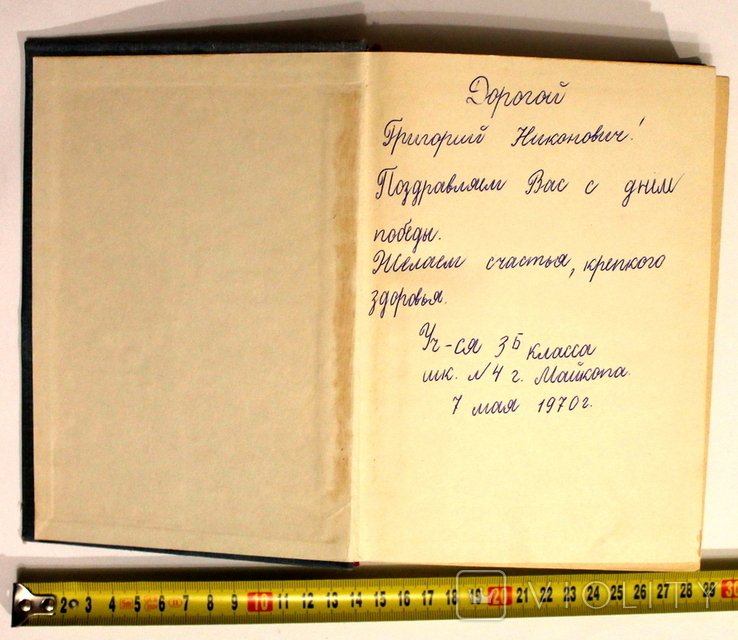 Дорогой
Григорий Никонович!
Поздравляем Вас с днём
победы.
Желаем счастья, крепкого
здоровья.
Уч-ся 3Б класса
шк. №4 г. Майкопа.
7 мая 1970г.
2 3 4 5 6 7 8 9 10 11 12 13 14 15 16 17 18 19 20 21 22 23 24 25 26 27 28 29 30
VIOLITY